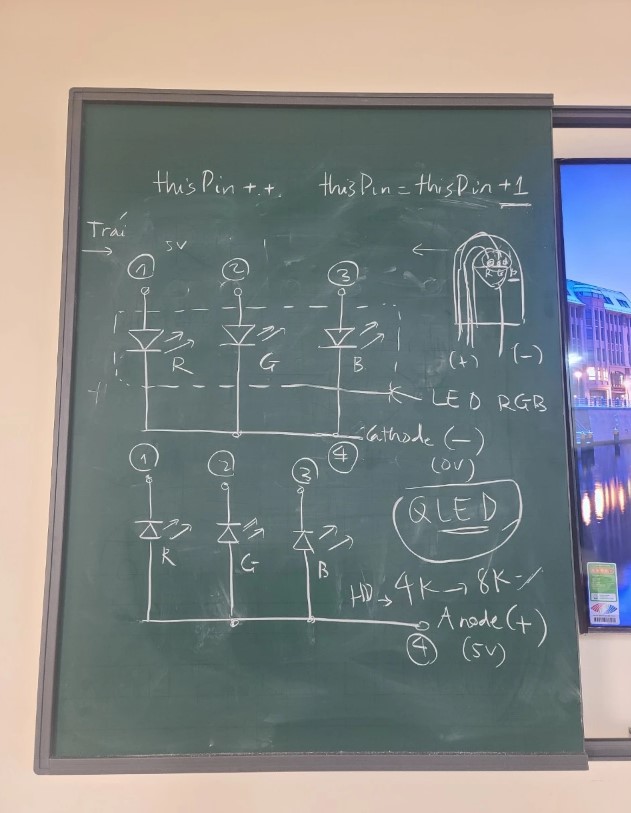 thisPin++. thisPin = thisPin+1
Trái
5V
1 2 3
R G B
R G B
(+) (-)
LED RGB
Cathode (-)
4
(0V)
1 2 3
QLED
R G B
HD → 4K → 8K
Anode (+)
4
(5V)